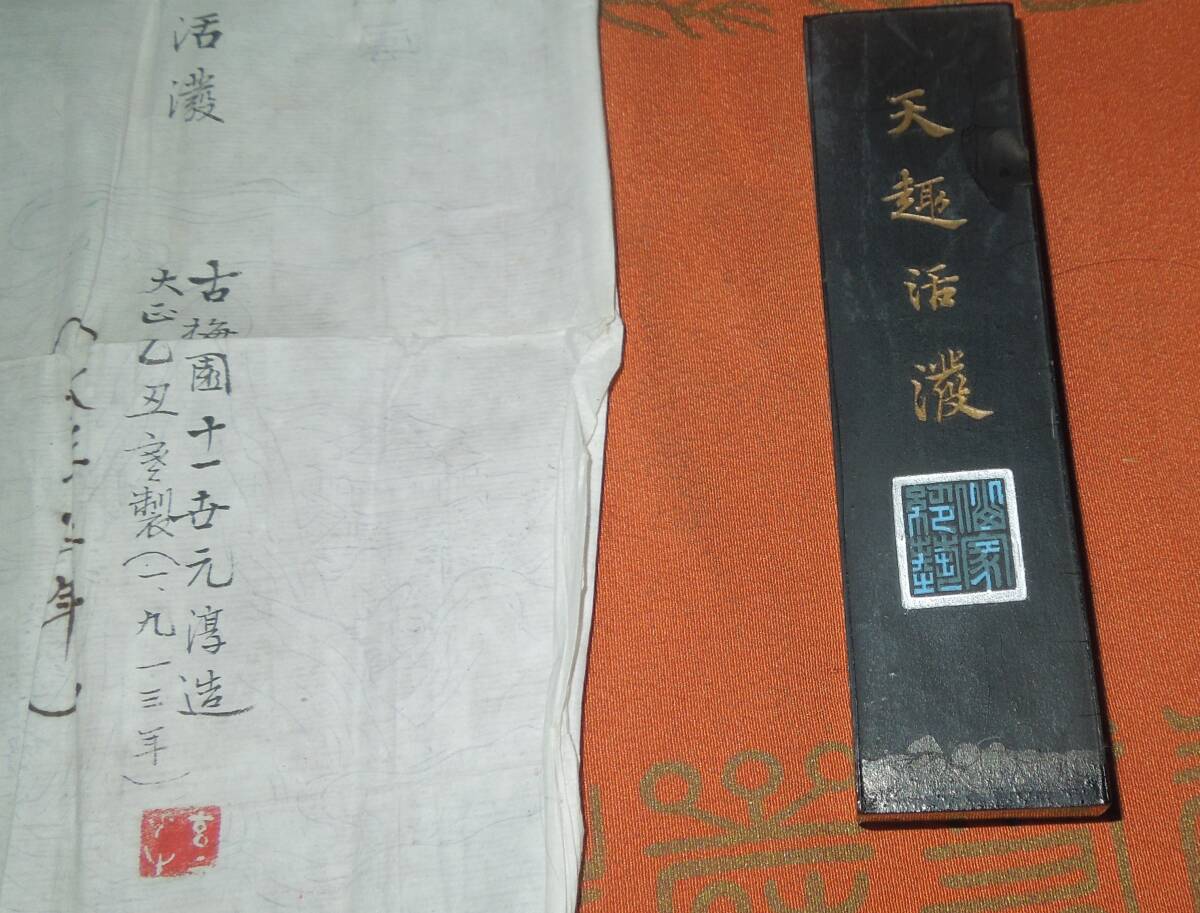 天趣活潑
活潑
古梅園十一世元淳造
大正乙丑寒製(一九一三年)
年)